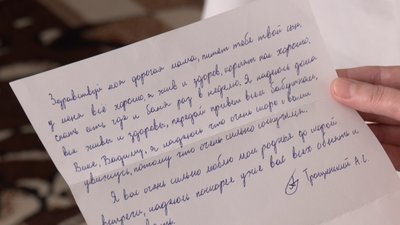 Здравствуй моя дорогая мама, пишет тебе твой сын.
у меня всё хорошо, я жив и здоров, кормят нас хорошо.
спать есть где и баня раз в неделю. Я надеюсь дома
все живы и здоровы, передай привет всем бабушкам,
Вике, Вадиму, я надеюсь что очень скоро с вами
увижусь, потому что очень сильно соскучился.
Я вас очень сильно люблю мои родные до скорой
встречи, надеюсь поскорее уже вас всех обнять и
Трощенкий А.С